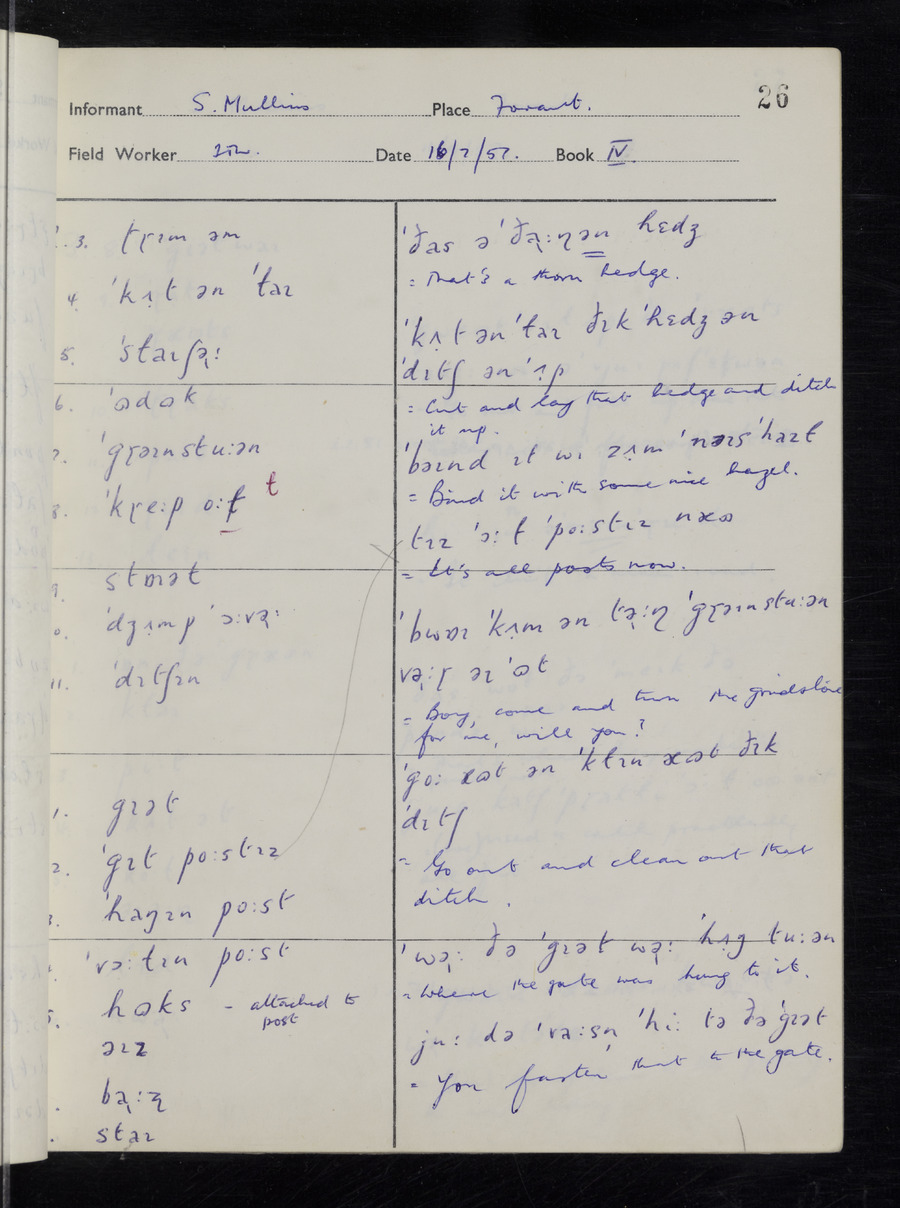 26
Informant S. Mullins Place Fovant.
Field Worker Date 16/7/57. Book IV
3. tɽɪm əm
4. ˈkʌt ən ˈtaɪ
5. ˈstaɪʃə̢ː
6. ˈɒdək
7. ˈgɽəɪnstuːən
8. ˈkɽeːp oːf t
9. stɒət
0. ˈdʒʌmp ɔːvə̢ː
11. ˈdɪtʃɪn
1. gɪət
2. ˈgɪt poːstɪz
3. ˈhaŋɪn poːst
ˈvɔːlɪn poːst
5. hɒks – attached to
post
əɪz
staɪ
ˈðas ə ˈða̢ːɳən hɛdʒ
= That's a thorn hedge.
ˈkʌt ən ˈtaɪ ðɪk ˈhɛdʒ ən
ˈdɪtʃ ən ˈʌp
= Cut and lay that hedge and ditch
it up.
ˈbəɪnd ɪt wɪ zʌm ˈnəɪs ˈhazl
= Bind it with some nice hazel.
tɪz ˈɔːl ˈpoːstɪz næʊ
= It's all posts now.
ˈbwɒɪ ˈkʌm ən tə̢ːɳ ˈgɽəɪnstuːən
və̢ːɽ əɪ ˈɒt
= Boy, come and turn the grindstone
for me, will you?
ˈgoː æʊt ən ˈklɪn æʊt ðɪk
ˈdɪtʃ
= Go out and clean out that
ditch.
ˈwə̢ː ðə ˈgɪət wə̢ː ˈhʌŋ tuːən
= Where the gate was hung to it.
juː də ˈvaːsn ˈhiː tə ðə ˈgɪət
= You fasten that to the gate.